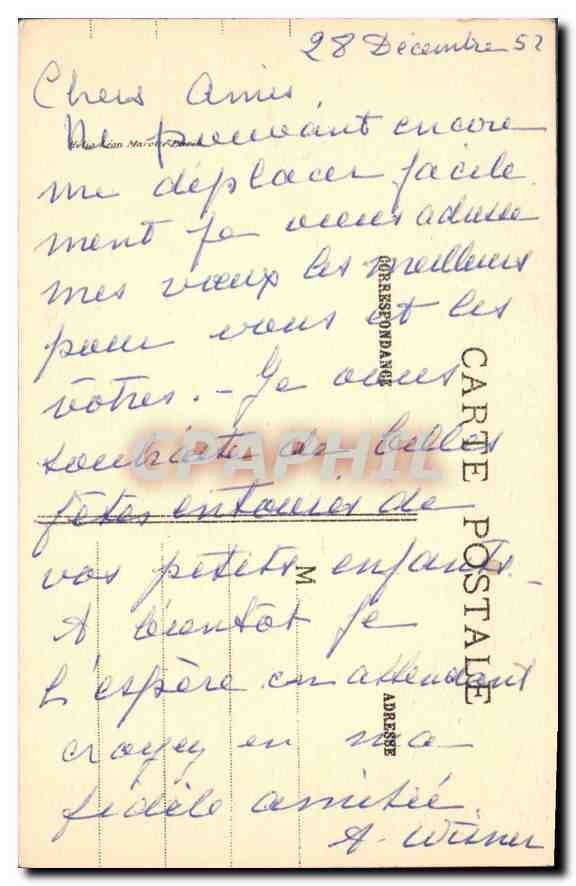 28 Décembre 52
Chers Amis
Ne pouvant encore
me déplacer facile
ment je vous adresse
mes vœux les meilleurs
pour vous et les
vôtres. - Je vous
souhaite de belles
fêtes entourés de
vos petits enfants. -
A bientôt je
l'espère en attendant
croyez en ma
fidèle amitié.
CORRESPONDANCE
CARTE POSTALE
M
ADRESSE
CPAPHIL